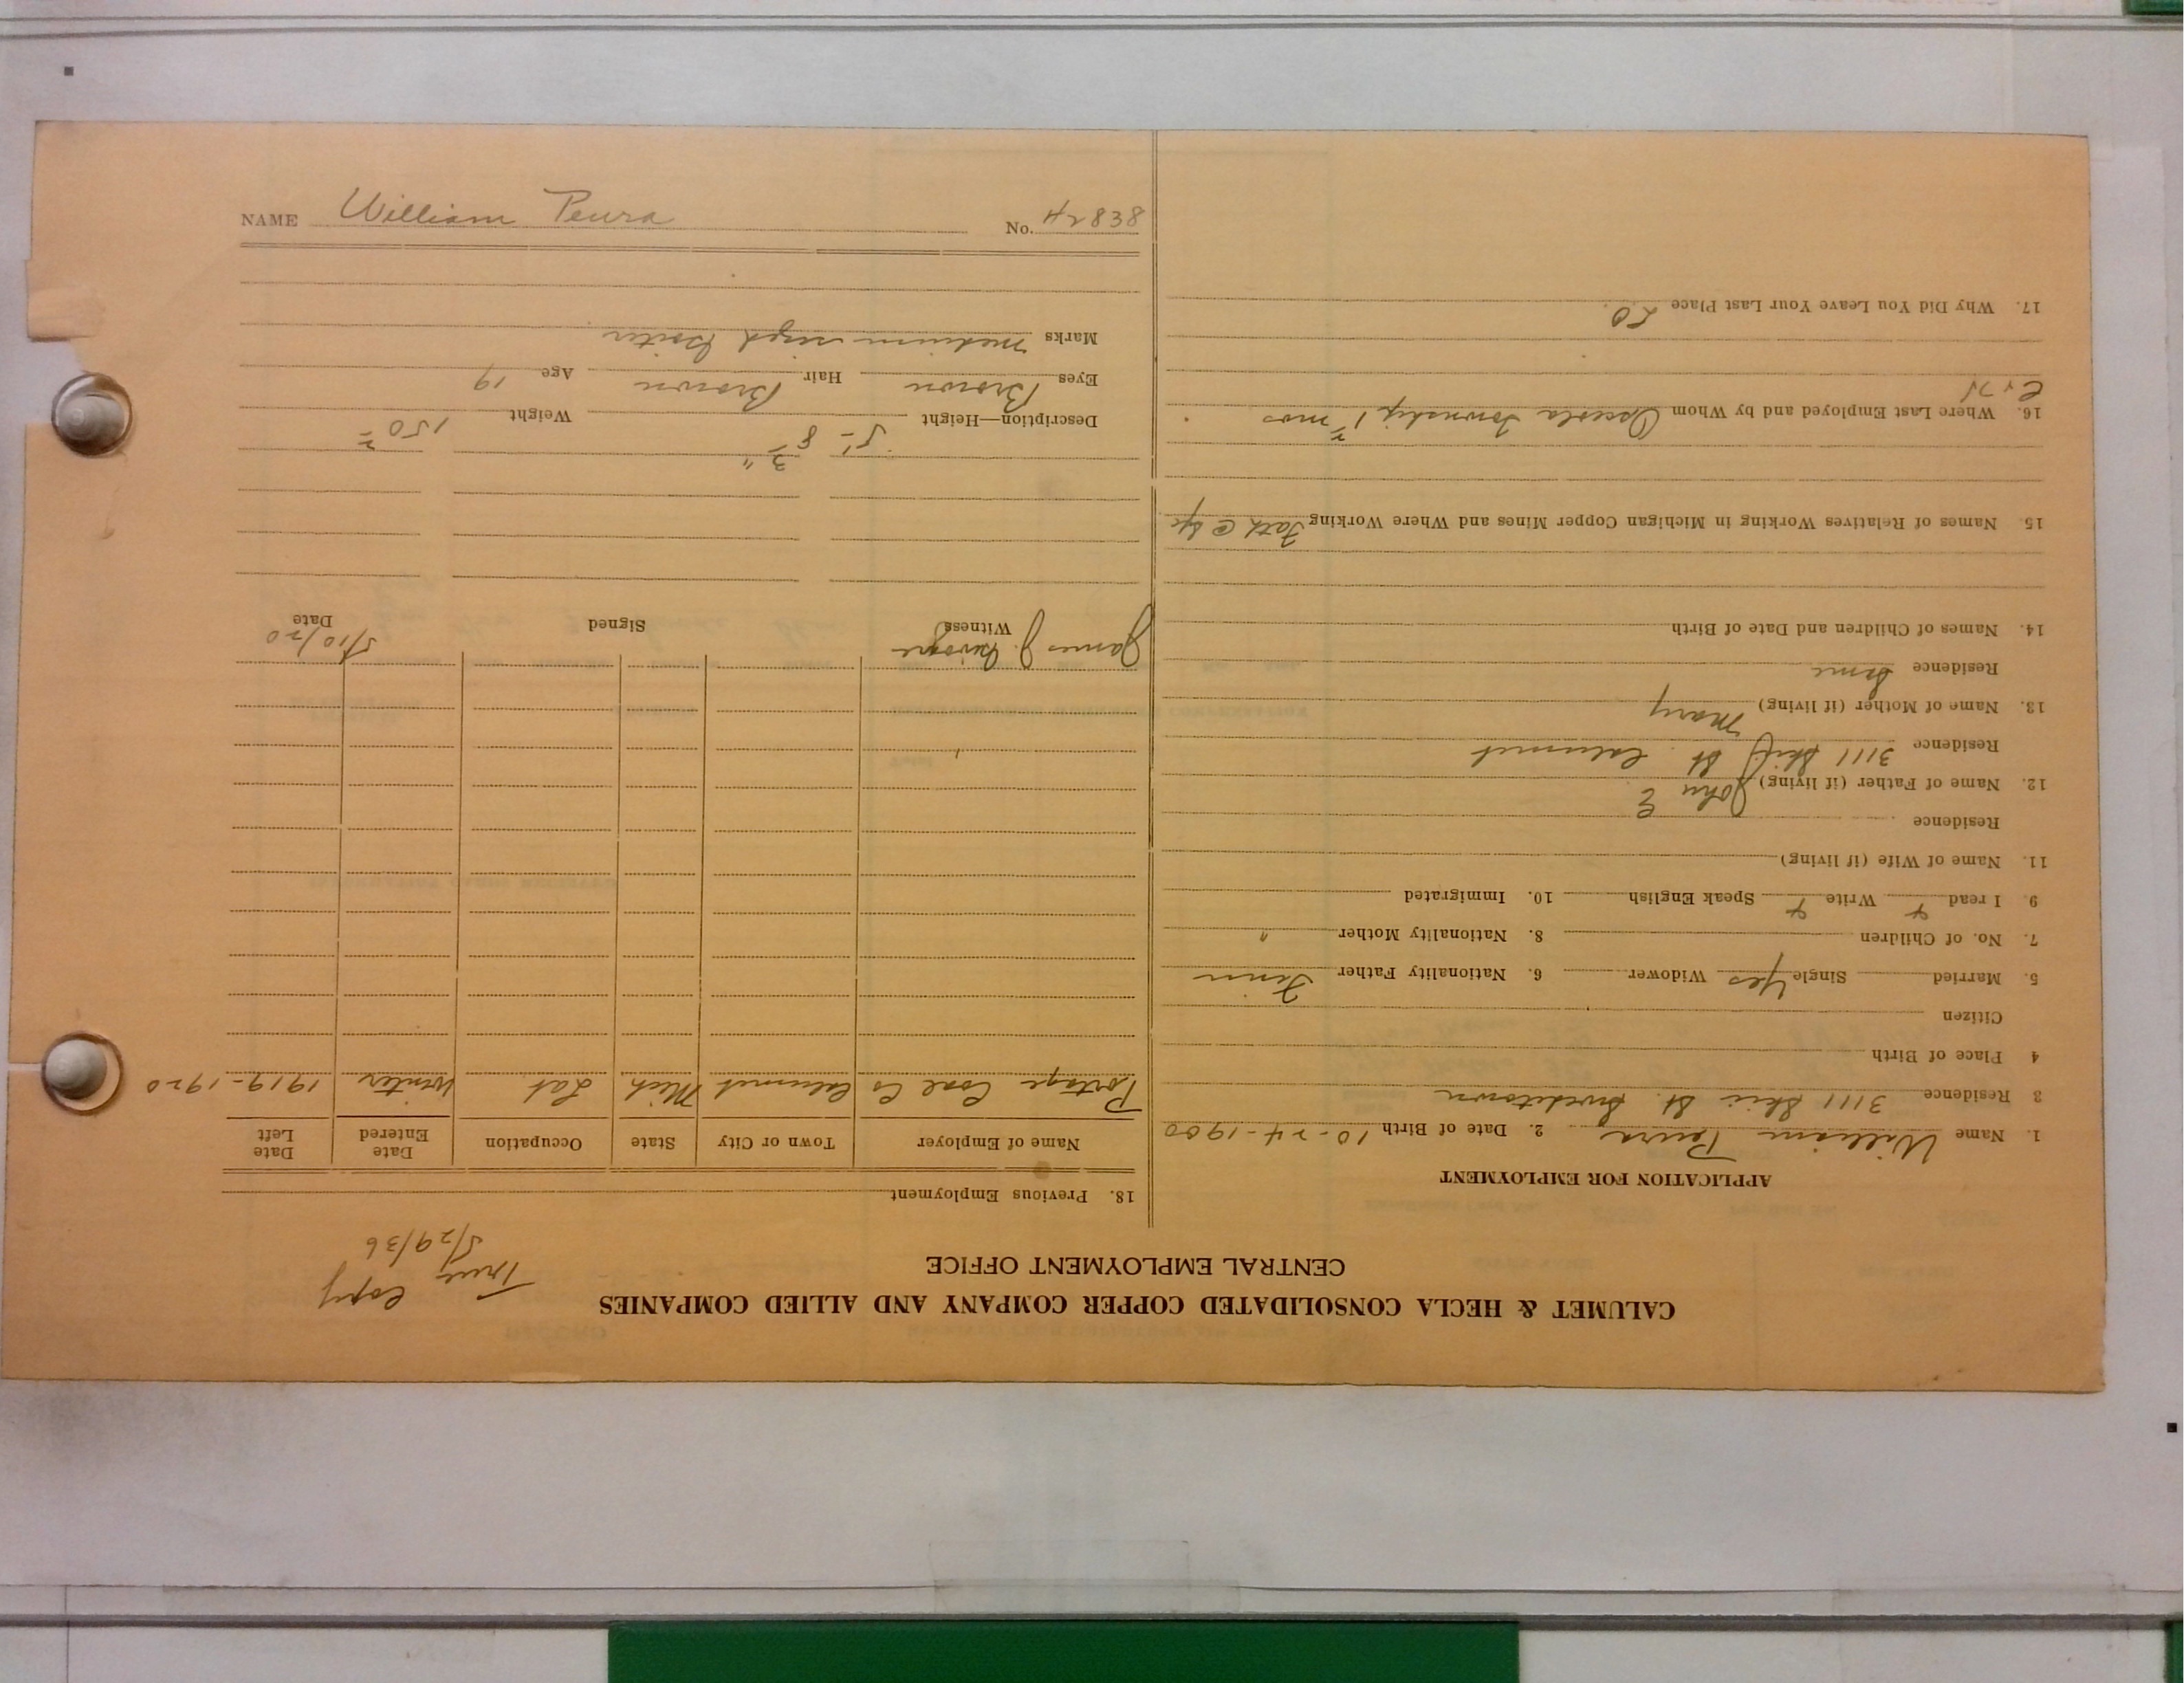 NAME William Peura No. 42838
CALUMET & HECLA CONSOLIDATED COPPER COMPANY AND ALLIED COMPANIES
CENTRAL EMPLOYMENT OFFICE
True Copy
5/29/36
APPLICATION FOR EMPLOYMENT
1. Name William Peura 2. Date of Birth 10-24-1900
3 Residence 3111 St. Swedetown
4 Place of Birth
Citizen
5. Married Single Yes Widower 6. Nationality Father Finn
7. No. of Children 8. Nationality Mother "
9. I read Write Speak English 10. Immigrated
11. Name of Wife (if living)
Residence
12. Name of Father (if living) John E
Residence 3111 St. Calumet
13. Name of Mother (if living) Mary
Residence Same
14. Names of Children and Date of Birth
15. Names of Relatives Working in Michigan Copper Mines and Where Working Fath @
16. Where Last Employed and by Whom Osceola Township mos
17. Why Did You Leave Your Last Place LO.
18. Previous Employment
Name of Employer Town or City State Occupation Date Entered Date Left
Portage Coal Co Calumet Mich Lab Winter 1919-1920
James J.
Witness Signed Date
5/10/20
Description—Height 5' 8 3" Weight 150
Eyes Brown Hair Brown Age 19
Marks medium sized Goiter